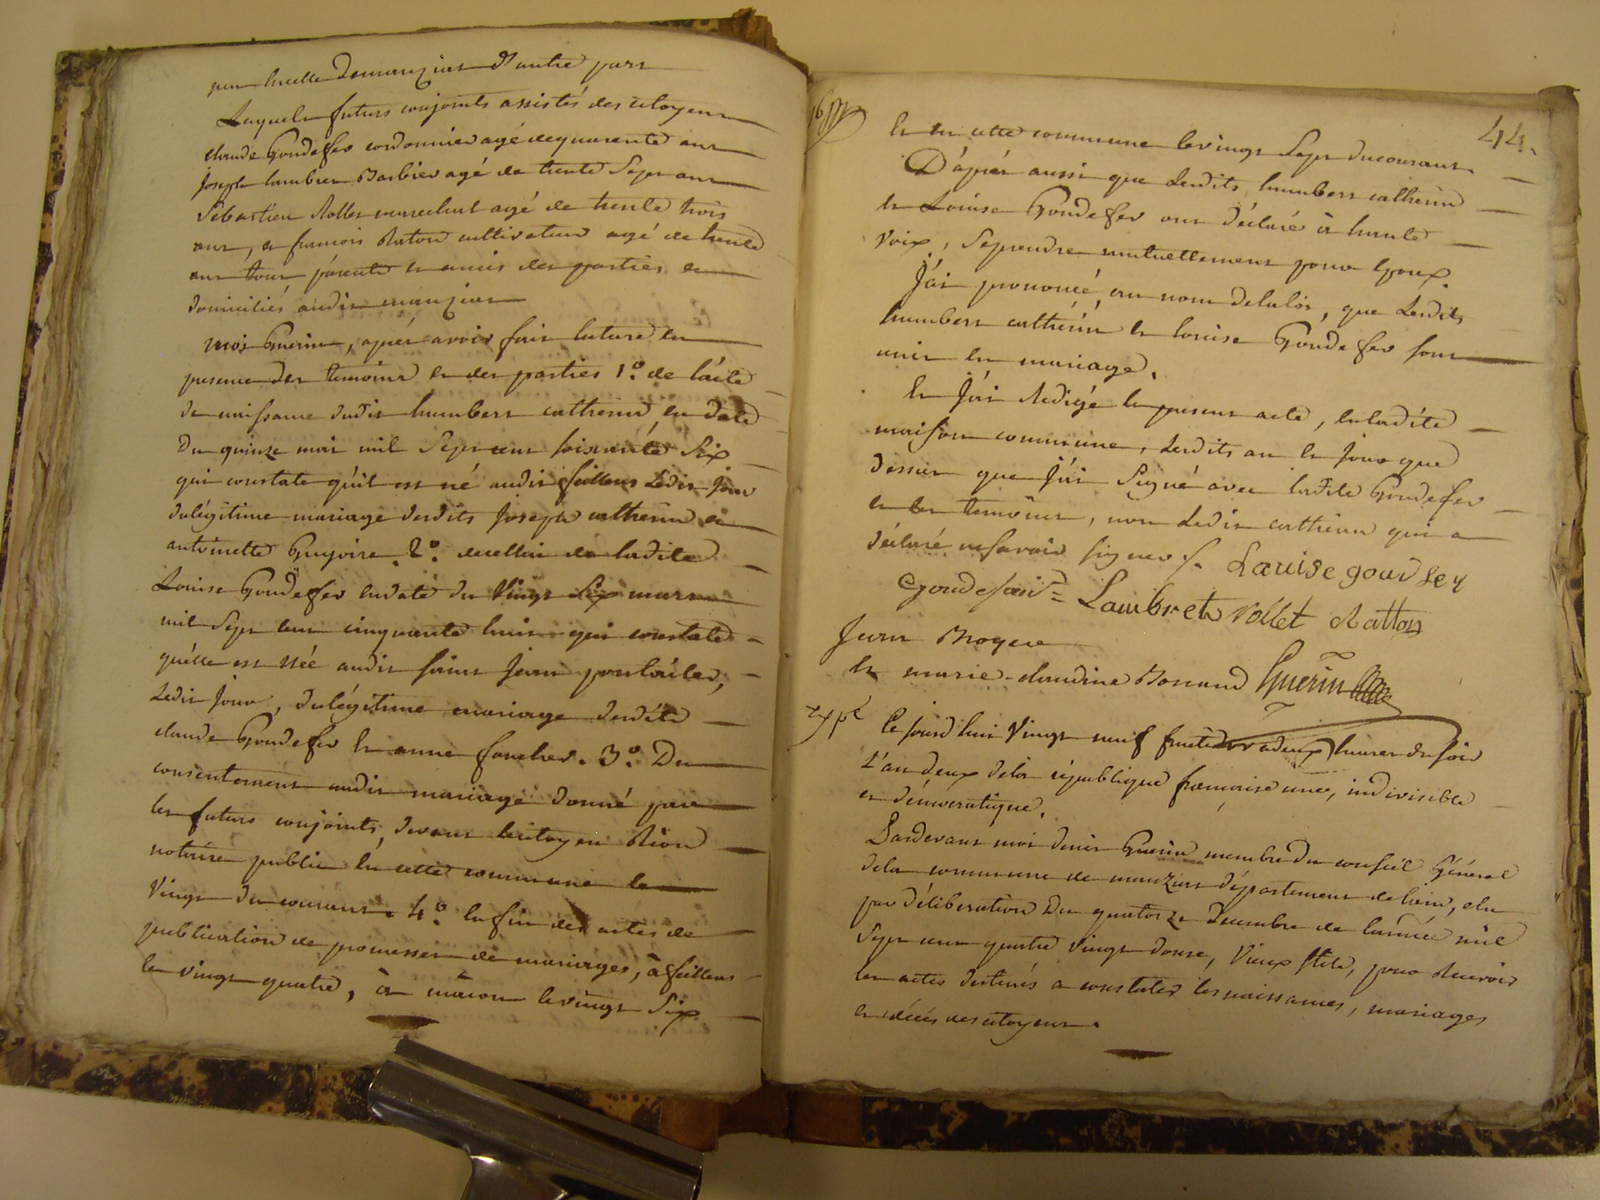 par icelle de manziat d'autre part
Lesquels futurs conjoints assistés des citoyens
claude Gondefer cordonnier agé de quarente ans
Joseph Barbier agé de trente sept ans
Sébastien Rollet marechal agé de trente trois
ans, et francois Raton cultivateur agé de trente
ans tous parents et amis des parties et
domiciliés audit manziat
moi Guerin, après avoir fait lecture en
presence des temoins et des parties 1.º de l'acte
de naissance dudit humbert catherin en date
du quinze mai mil Sept cent soixante Six
qui constate qu'il est né audit feillens Ledit jour
du légitime mariage desdits Joseph catherin et
antoinette Gregoire. 2.º de celui de ladite
Louise Gondefer en date du Vingt Six mars
mil Sept cent cinquante huit qui constate
qu'elle est née audit Saint Jean
Ledit jour, du légitime mariage desdits
claude Gondefer et anne foucher. 3.º Du
consentement audit mariage donné par
les futurs conjoints, devant le citoyen
notaire public en cette commune le
Vingt du courant. 4.º enfin des actes de
publication de promesses de mariages, à feillens
le vingt quatre, à mâcon le vingt Six
44.
et en cette commune le vingt Sept du courant.
D'après aussi que Lesdits humbert catherin
et Louise Gondefer ont déclaré à haute
voix, Se prendre mutuellement pour Epoux.
J'ai prononcé, au nom de la loi, que Lesdits
humbert catherin et louise Gondefer sont
unis en mariage.
Et J'ai Redigé le present acte, en ladite
maison commune, Lesdits an et jour que
dessus que J'ai Signé avec ladite Gondefer
et les temoins, non Ledit catherin qui a
déclaré ne savoir signer /. Lauise gondfey
Lambret Rollet Ratton
Jean Broyer
et marie-claudine Guerin
Ce jourd'hui Vingt neuf fructidor à deux heures du soir
L'an deux de la république francaise une, indivisible
et démocratique.
Pardevant moi denis Guerin membre du conseil Général
de la commune de manziat département de l'ain, elu
par déliberation Du quatorze Décembre de l'année mil
Sept cent quatre vingt douze, Vieux stile, pour Recevoir
les actes destinés a constater les naissances, mariages
et décés des citoyens.